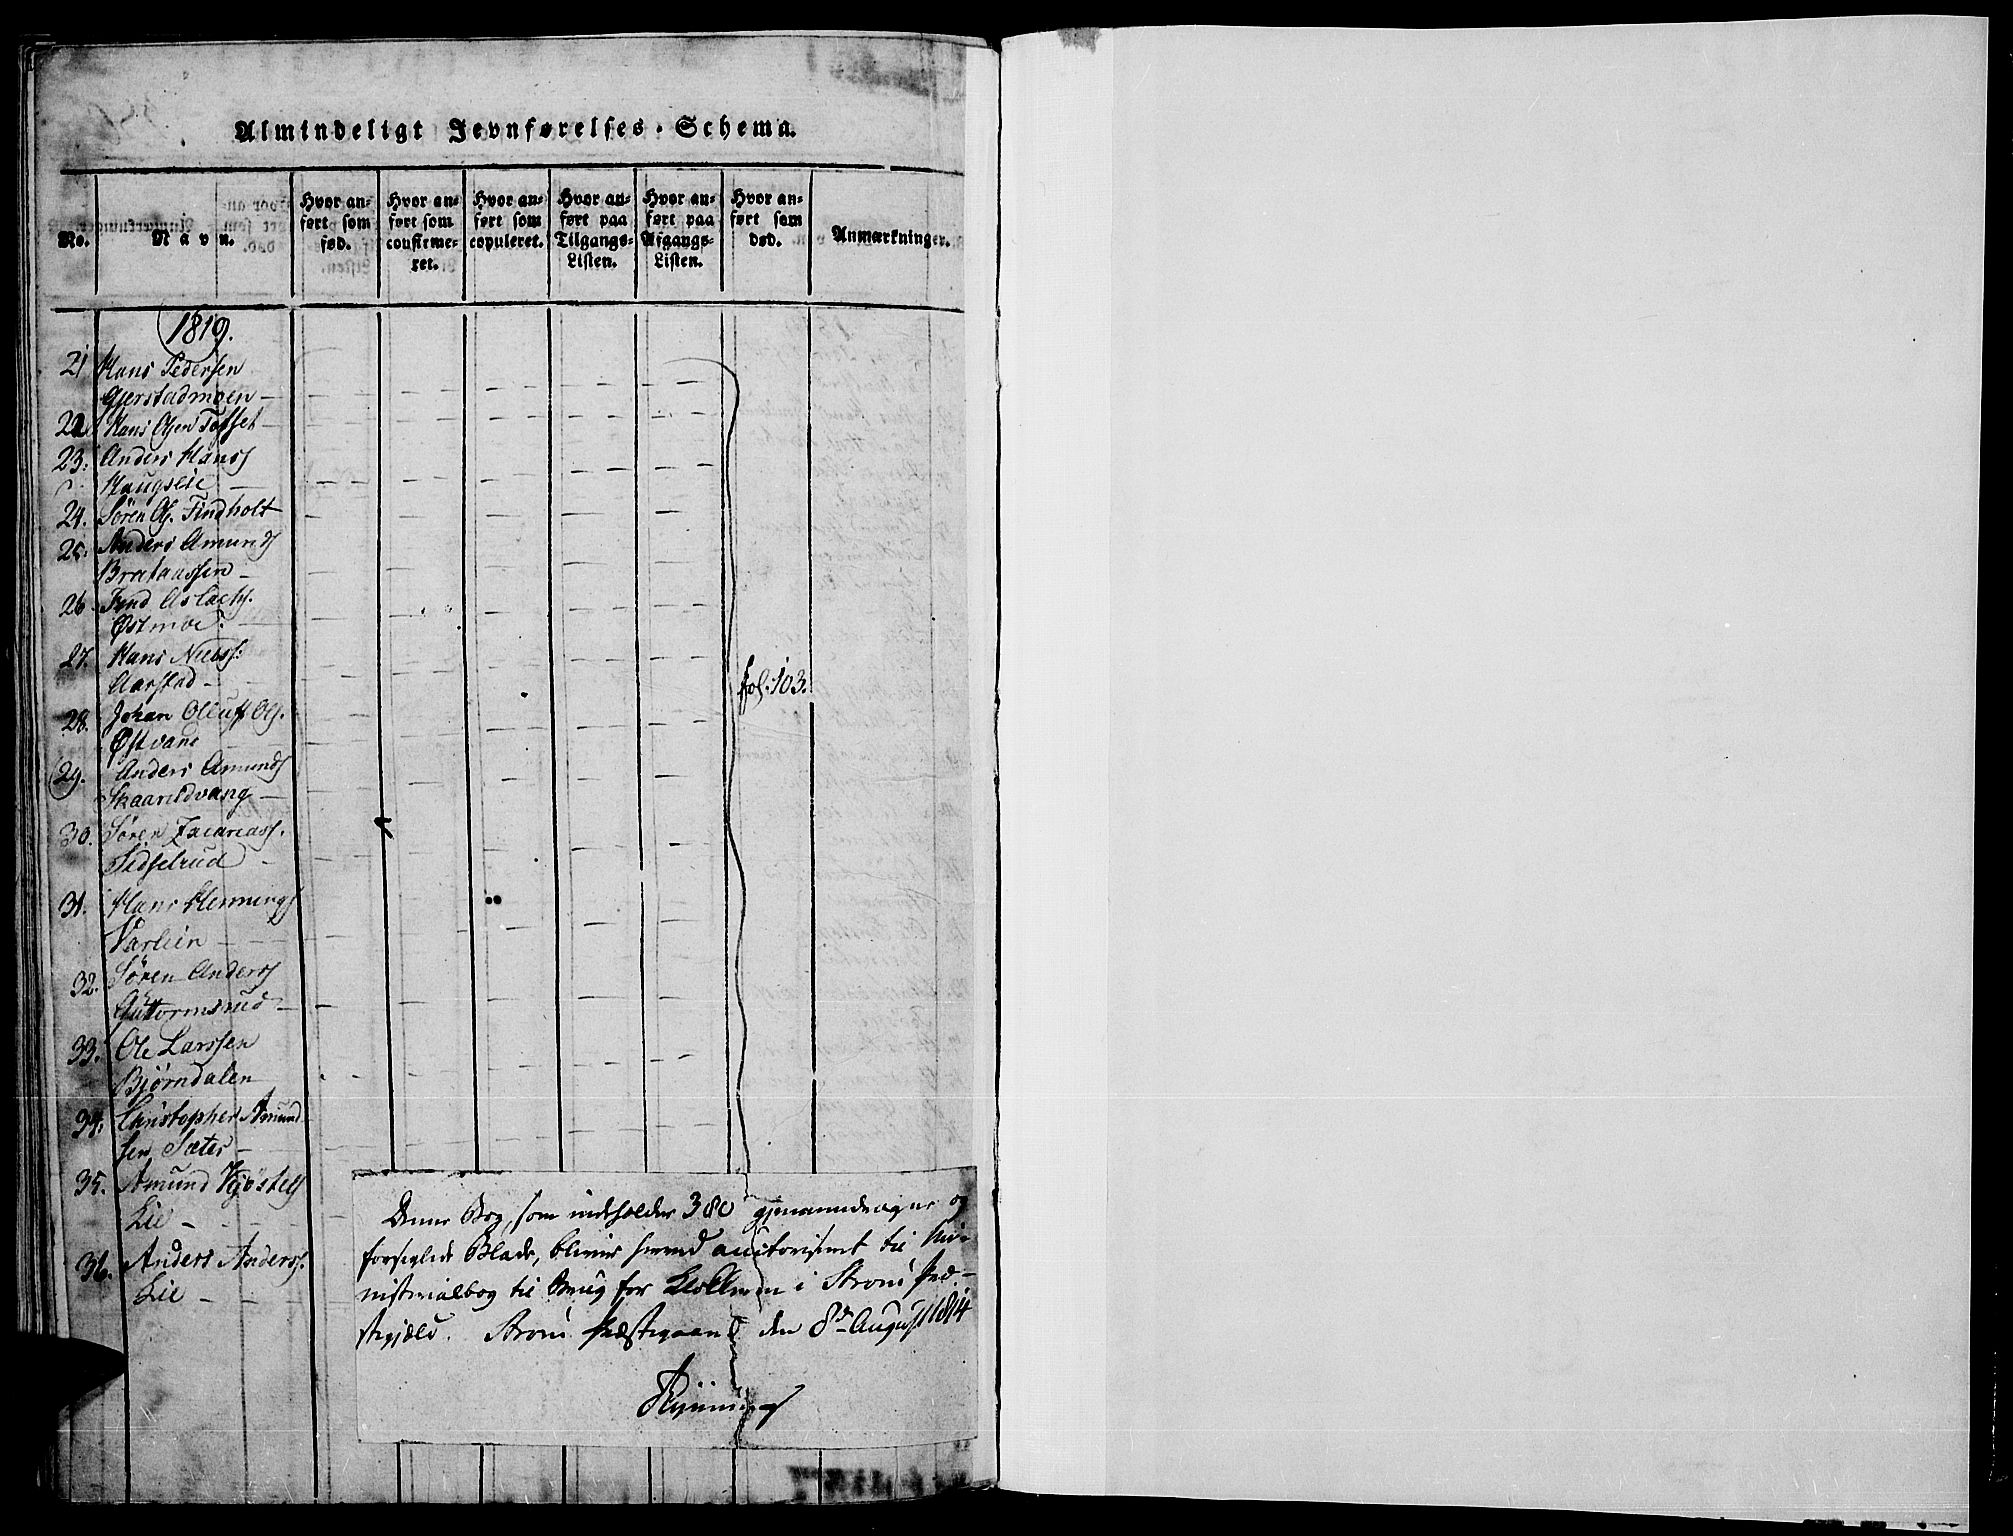 Almindeligt Jevnførelses-Schema.
No.
Navn.
Hvor anført som fød.
Hvor anført som confirmeret.
Hvor anført som copuleret.
Hvor anført paa Tilgangs-Listen.
Hvor anført paa Afgangs-Listen.
Hvor anført som død.
Anmærkninger.
1819.
21 Hans Pedersen
Gjerstadmoen —
22 Hans Olsen Tofset
23. Anders Hanss
Haugslie —
24. Søren Ols. Findholt
25. Anders Amunds
Brataassen —
26. Find Aslachs.
Østmoe.
27. Hans Nielss:
Aarstad —
fol. 103.
28. Johan Olluff Ols.
Østvang
29. Anders Amunds
30. Søren Zacariass.
Sidselrud —
31. Hans Hennings
32. Søren Anderss
Guttormsrud —
33. Ole Larssen
Bjørndalen
34. Christopher Amund
sen Sæter —
35. Amund Kjøstels
Lie —
36. Anders Anderss.
Lie —
Denne Bog, som indholder 380 gjennemdragne og
forseglede Blade, bliver herved auctoriseret til Mi-
nisterialbog til Brug for i Strøms Præ-
stegjæld. Strøms Præstegaard den 8de August 1814